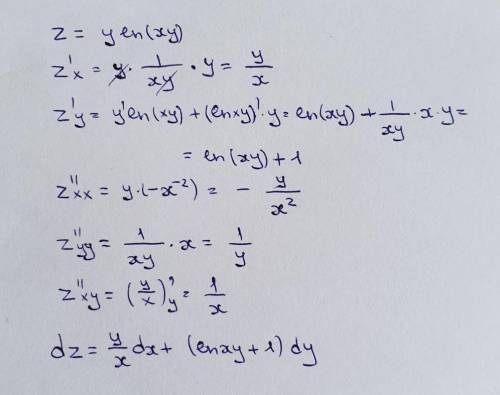 z = y ln(xy)
z'x = y · 1/(xy) · y = y/x
z'y = y' ln(xy) + (lnxy)' · y = ln(xy) + 1/(xy) · x · y =
= ln(xy) + 1
z''xx = y · (-x^-2) = - y/x^2
z''yy = 1/(xy) · x = 1/y
z''xy = (y/x)'y = 1/x
dz = y/x dx + (lnxy + 1) dy